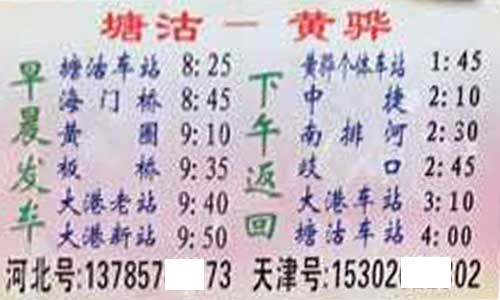 塘沽－黄骅
早晨发车
塘沽车站 8:25
海门桥 8:45
黄圈 9:10
板桥 9:35
大港老站 9:40
大港新站 9:50
下午返回
黄骅个体车站 1:45
中捷 2:10
南排河 2:30
歧口 2:45
大港车站 3:10
塘沽车站 4:00
河北号:13785773 天津号:1530202